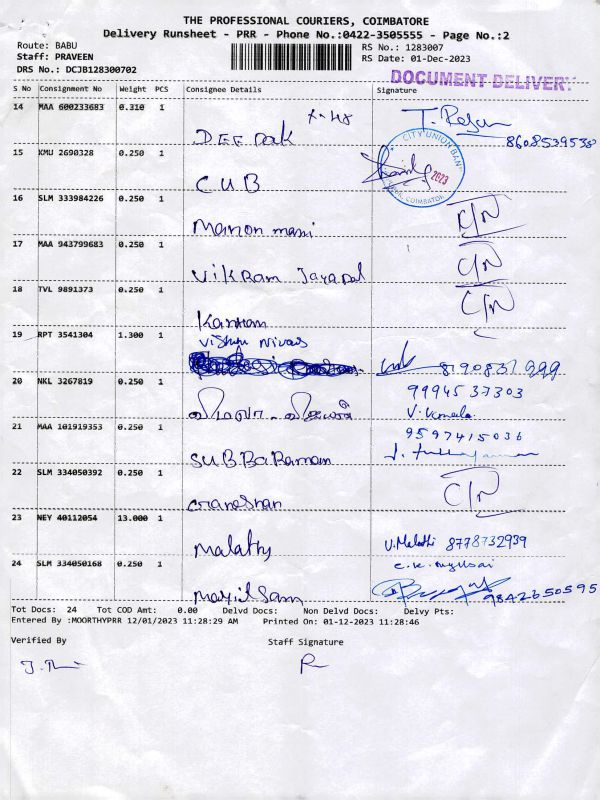 THE PROFESSIONAL COURIERS, COIMBATORE
Delivery Runsheet - PRR - Phone No.:0422-3505555 - Page No.:2
Route: BABU
Staff: PRAVEEN
DRS No.: DCJB128300702
RS No.: 1283007
RS Date: 01-Dec-2023
DOCUMENT DELIVERY
S No Consignment No Weight PCS Consignee Details Signature
14 MAA 600233683 0.310 1
DEEPAK
T. Rajan
8608539538
15 KMU 2690328 0.250 1
CUB
CITY UNION BANK
2023
COIMBATORE
16 SLM 333984226 0.250 1
Manonmani
C/N
17 MAA 943799683 0.250 1
VIKRAM Jayapal
C/N
18 TVL 9891373 0.250 1
Kannan
C/N
19 RPT 3541304 1.300 1
Vishnu Nivas
20 NKL 3267819 0.250 1
9994537303
V. Kamala
21 MAA 101919353 0.250 1
SUBBARaman
9597415036
22 SLM 334050392 0.250 1
Ganeshan
C/N
23 NEY 40112054 13.000 1
Malathy
V. Malathi 8778732939
24 SLM 334050168 0.250 1
Mayilsami
C.K. Mylsai
9842650595
Tot Docs: 24 Tot COD Amt: 0.00 Delvd Docs: Non Delvd Docs: Delvy Pts:
Entered By :MOORTHYPRR 12/01/2023 11:28:29 AM Printed On: 01-12-2023 11:28:46
Verified By Staff Signature